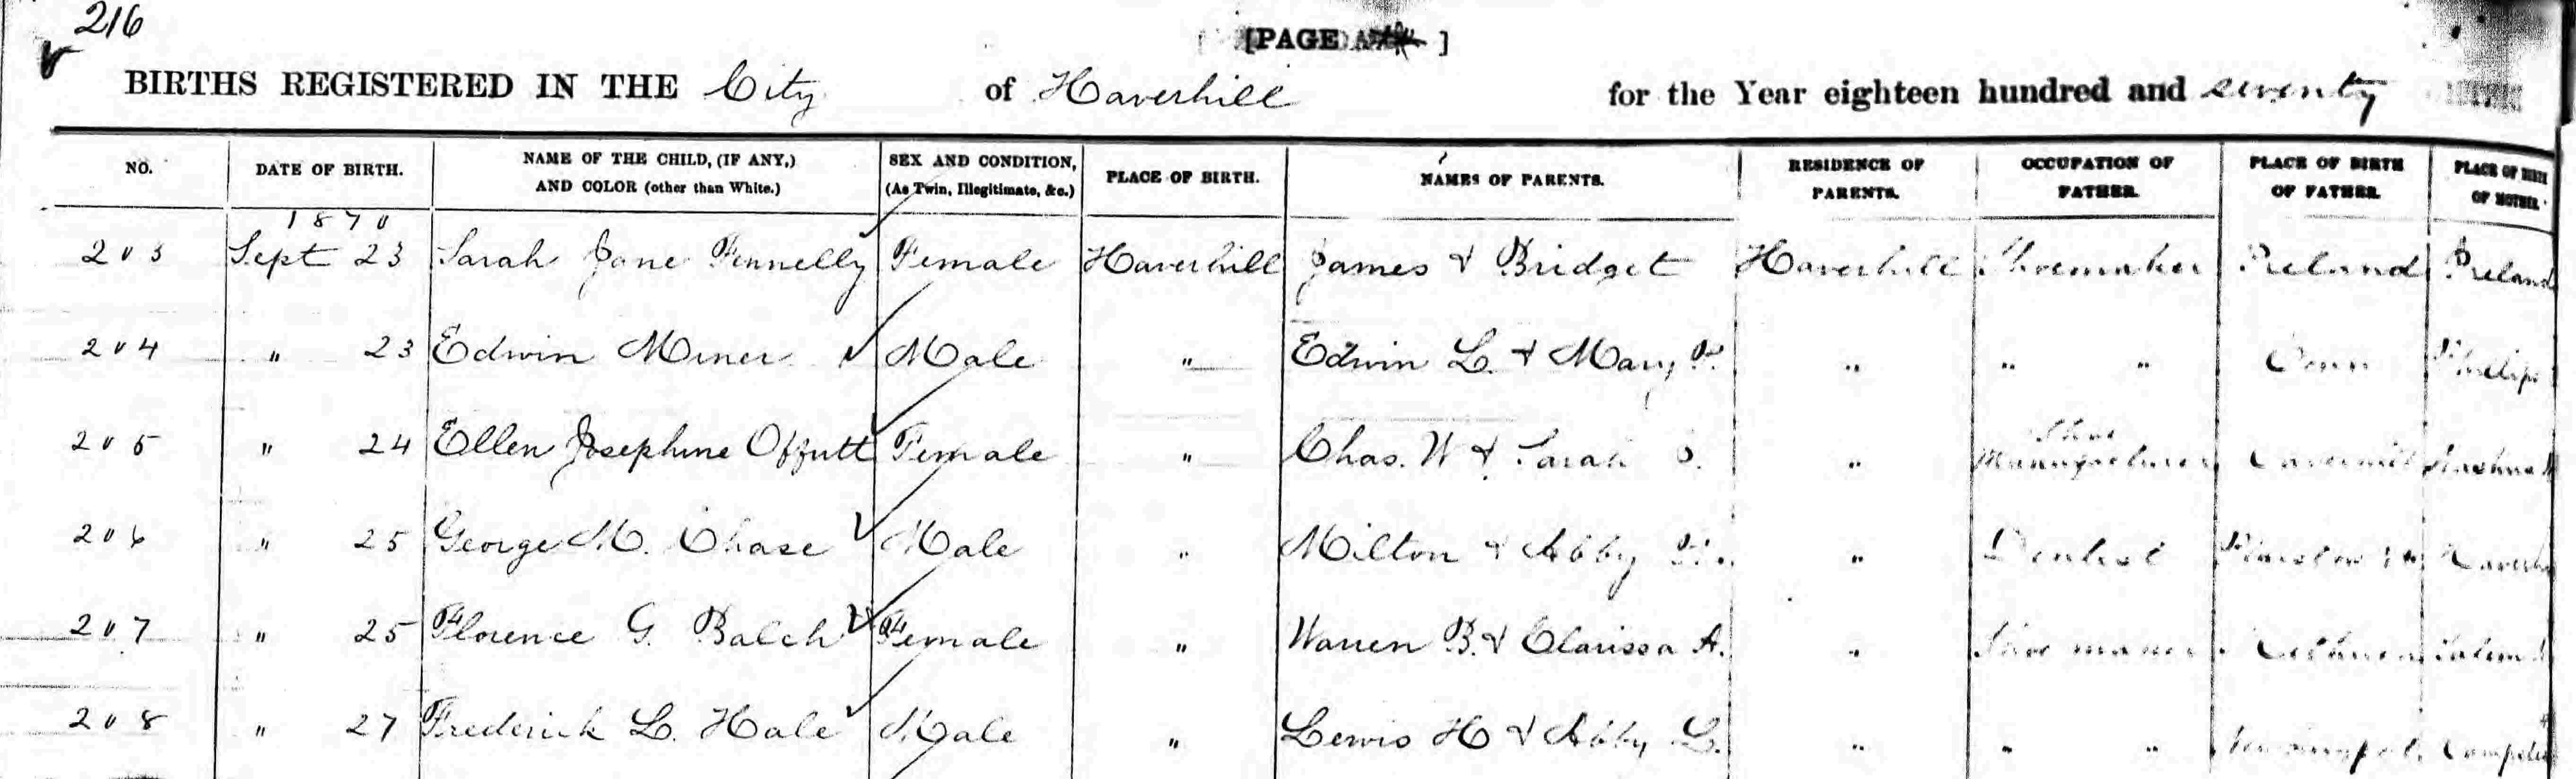 216
[PAGE ]
BIRTHS REGISTERED IN THE City of Haverhill for the Year eighteen hundred and seventy
NO. DATE OF BIRTH. NAME OF THE CHILD, (IF ANY,) AND COLOR (other than White.) SEX AND CONDITION, (As Twin, Illegitimate, &c.) PLACE OF BIRTH. NAMES OF PARENTS. RESIDENCE OF PARENTS. OCCUPATION OF FATHER. PLACE OF BIRTH OF FATHER. PLACE OF BIRTH OF MOTHER.
1870
203 Sept 23 Sarah Jane Fennelly Female Haverhill James & Bridget Haverhill Shoemaker Ireland Ireland
204 " 23 Edwin Miner Male " Edwin L. & Mary F. " " " Conn Philips
205 " 24 Ellen Josephine Offutt Female " Chas. W & Sarah " Shoe Manufacturer Nashua
206 " 25 George M. Chase Male " Milton & Abby " Dentist Haverhi
207 " 25 Florence G. Balch Female " Warren B. & Clarissa A. " Shoe maker Salem
208 " 27 Frederick L. Hale Male " Lewis H & Abby L. " " "